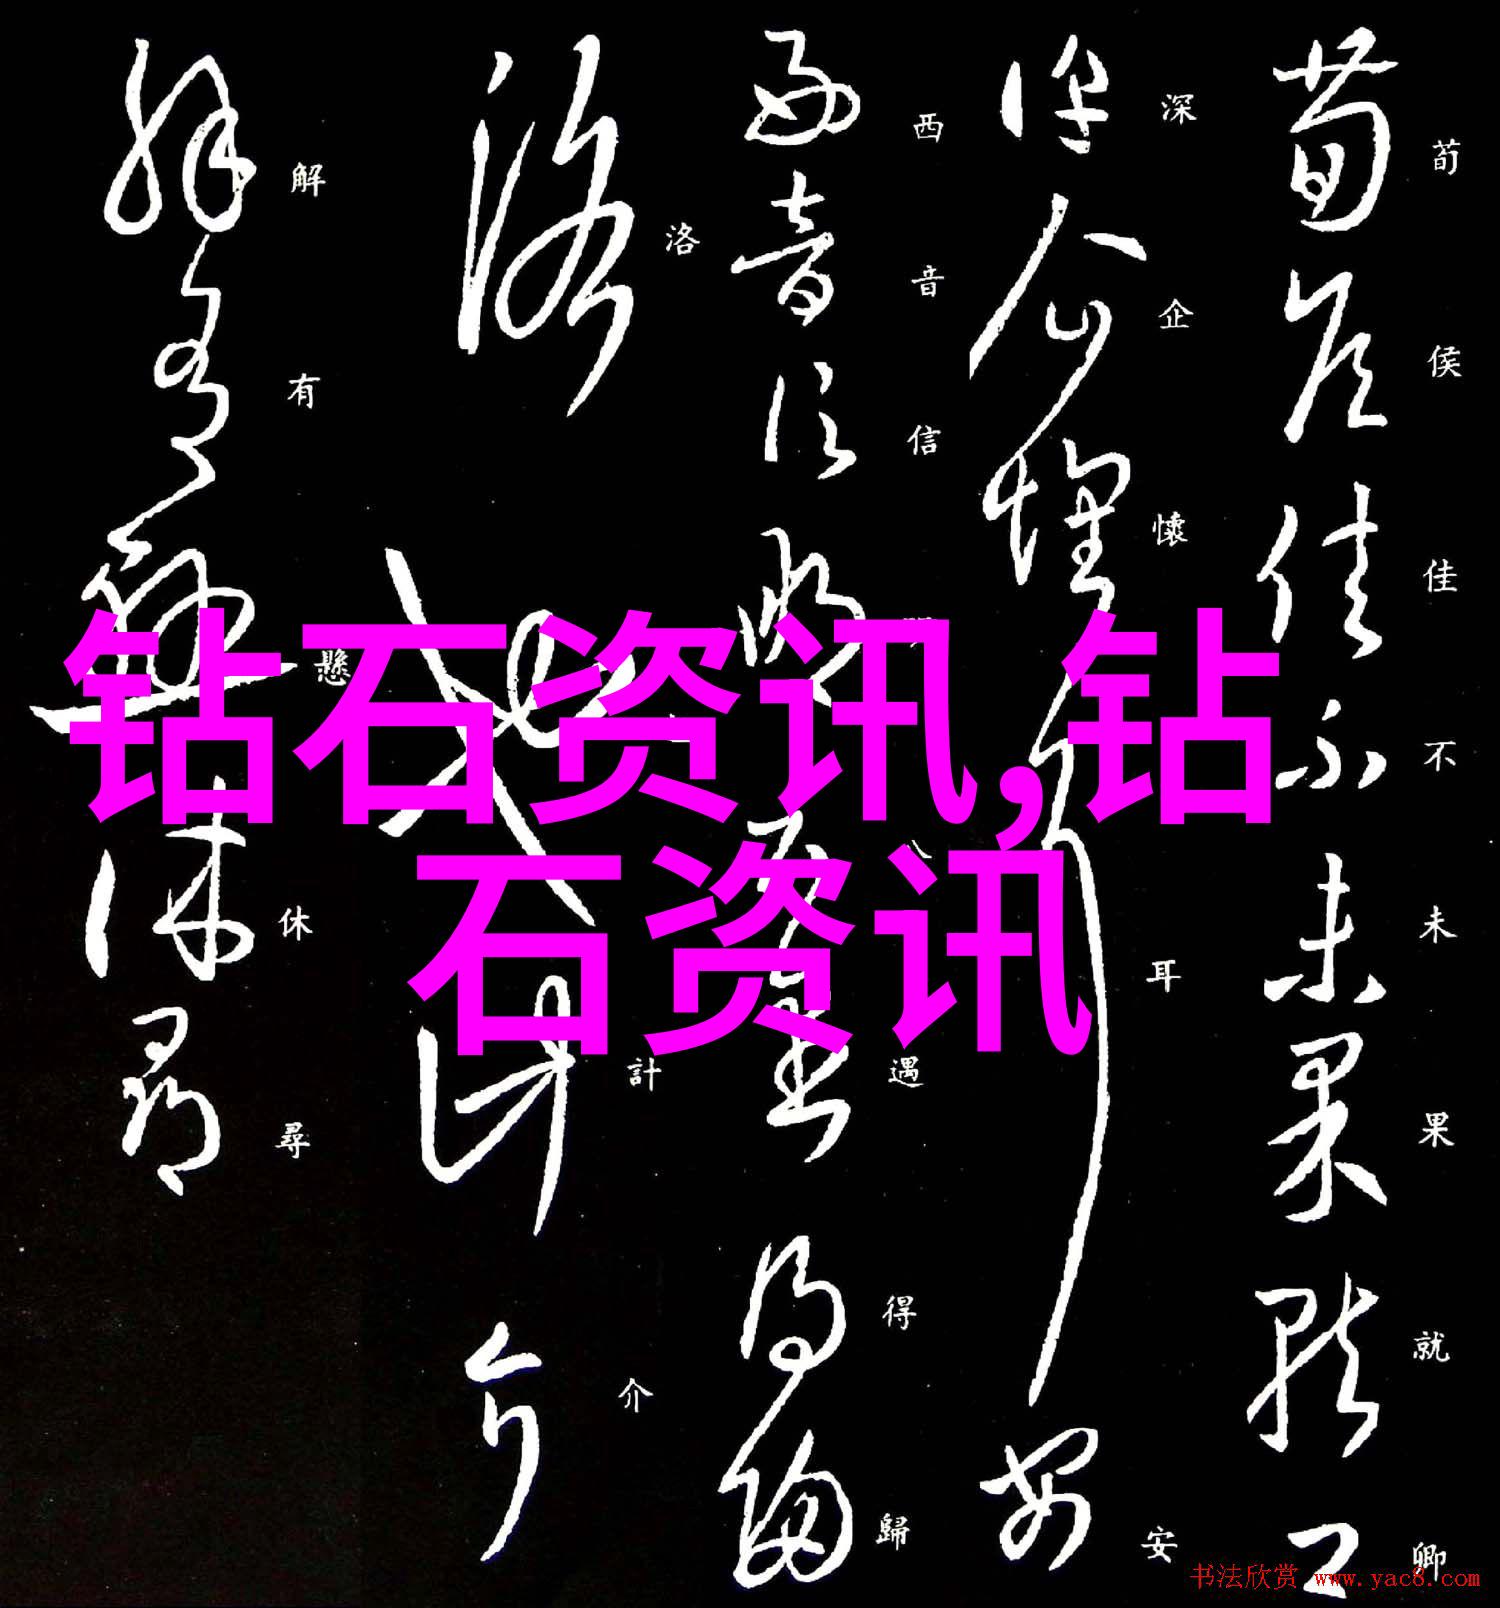 荀侯佳不未果就卿
深企懷耳安
西音信遇得歸
洛計介
解有懸休尋
钻石资讯,钻
石资讯
书法欣赏 www.yac8.com